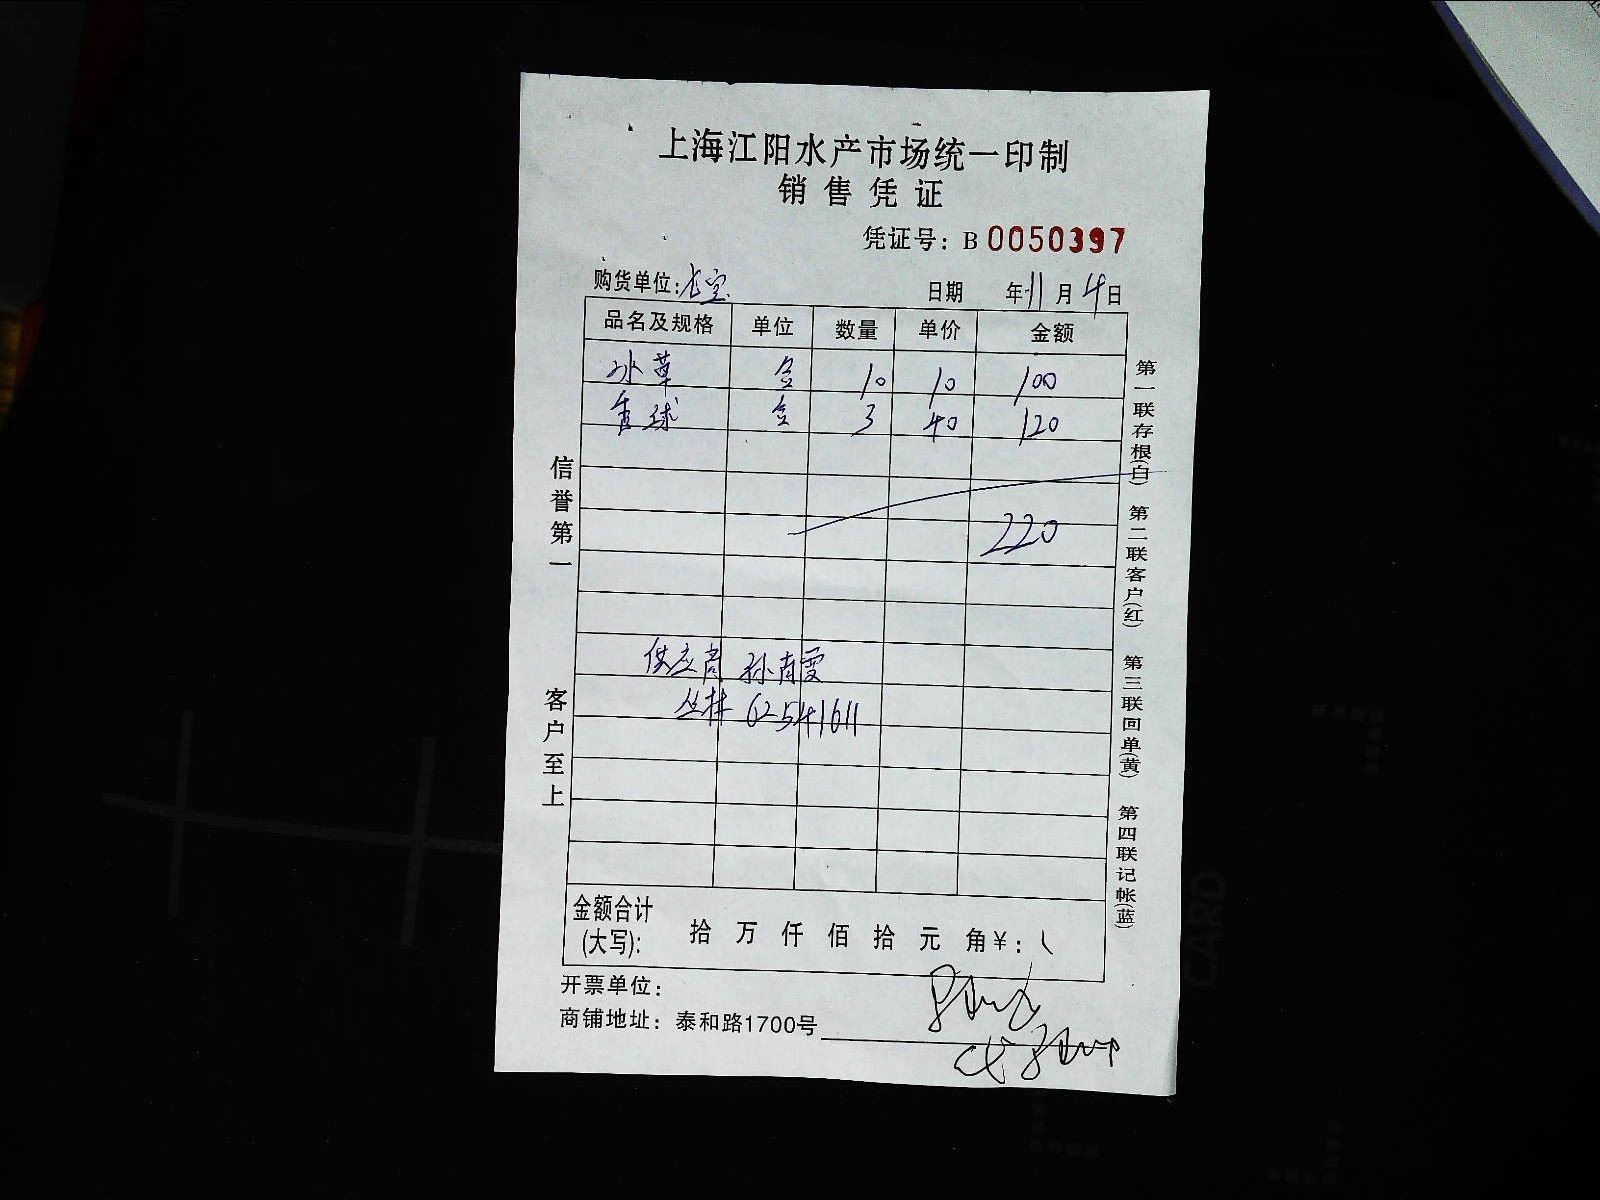 上海江阳水产市场统一印制
销售凭证
凭证号：B 0050397
购货单位：
日期 年 11 月 4 日
品名及规格 单位 数量 单价 金额
冰草 盒 10 10 100
香球 盒 3 40 120
220
供应商 孙
丛林 62541611
金额合计
(大写)： 拾 万 仟 佰 拾 元 角 ¥：
开票单位：
商铺地址：泰和路1700号
信誉第一
客户至上
第一联存根(白) 第二联客户(红) 第三联回单(黄) 第四联记帐(蓝)
CARD